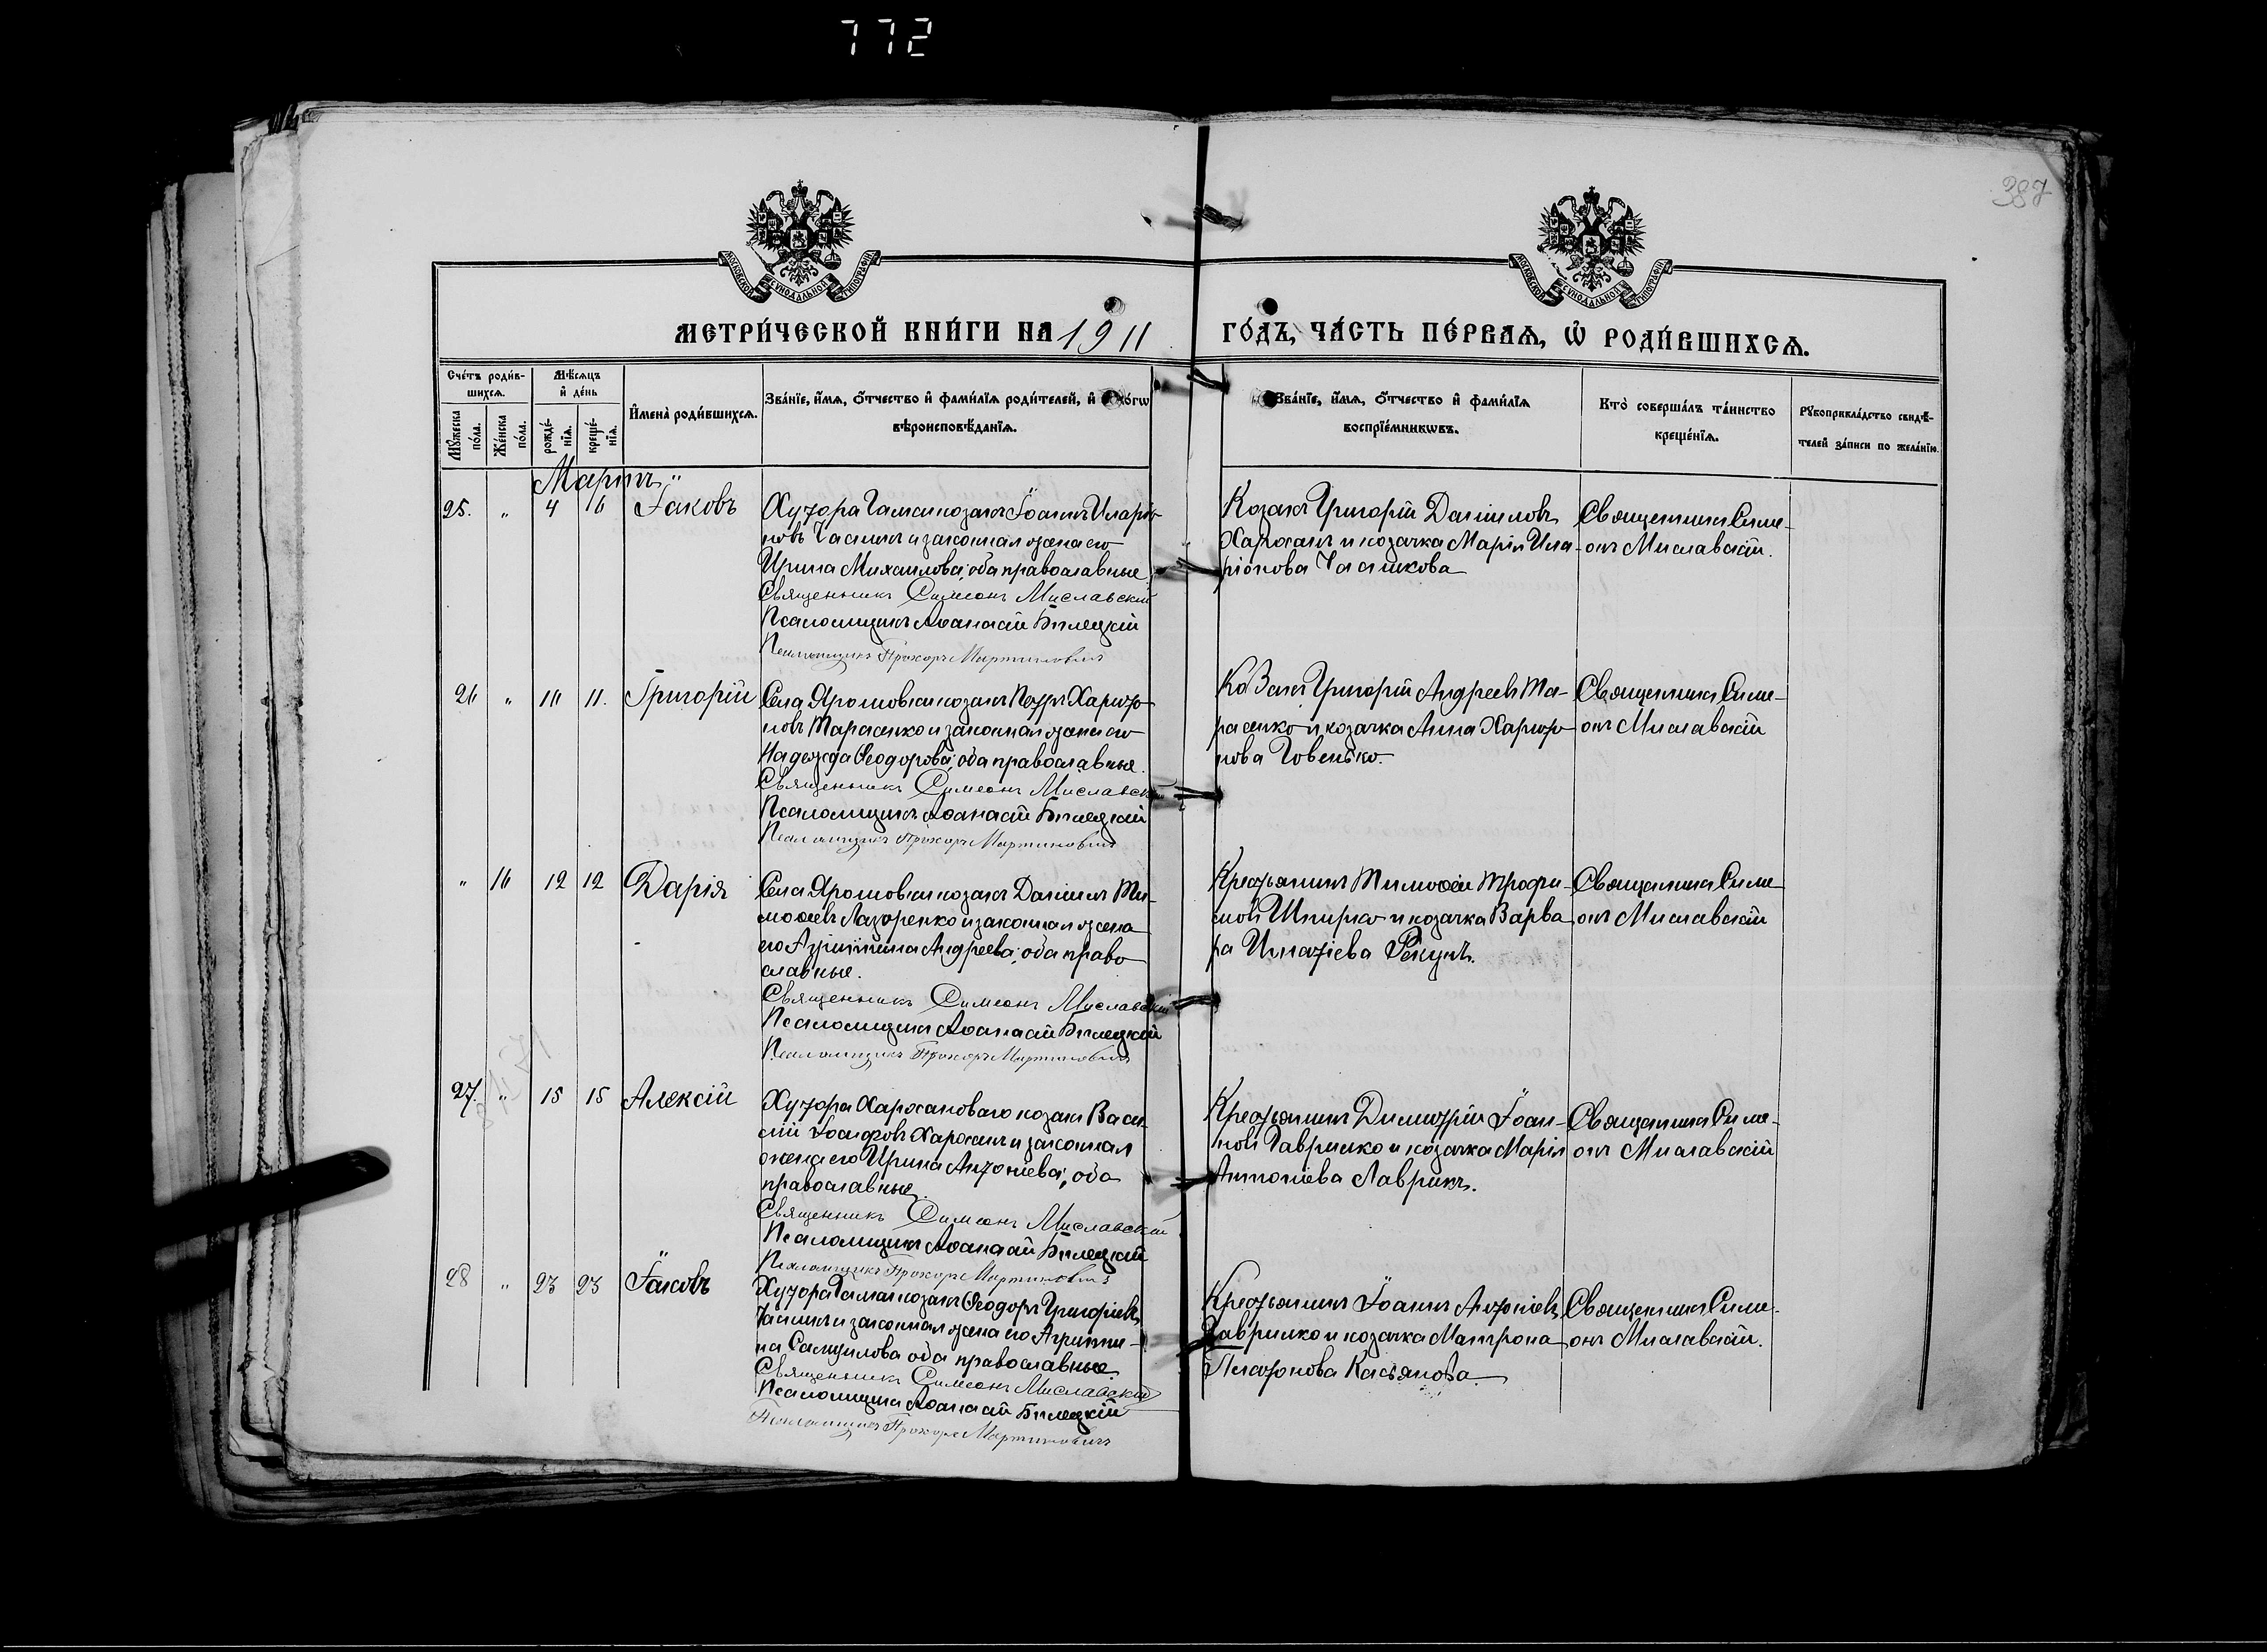 772
387
МОСКОВСКОЙ СѴНОДАЛЬНОЙ ТИПОГРАФІИ
МОСКОВСКОЙ СѴНОДАЛЬНОЙ ТИПОГРАФІИ
МЕТРИ́ЧЕСКОЙ КНИ́ГИ НА 1911 ГО́ДЪ, ЧА́СТЬ ПЕ́РВАѦ, Ѿ РОДИ́ВШИХСѦ.
Сче́тъ роди́в-
шихсѧ.
Мꙋ́жеска по́ла.
Же́нска по́ла.
Мѣ́сѧцъ
и҆ де́нь
рожде́-
нїѧ.
креще́-
нїѧ.
И҆мена̀ роди́вшихсѧ.
Зва́нїе, и҆́мѧ, ѻ҆́тчество и҆ фами́лїѧ роди́телей, и҆
вѣроисповѣ́данїѧ.
Зва́нїе, и҆́мѧ, ѻ҆́тчество и҆ фами́лїѧ
воспрїе́мникѡвъ.
Кто̀ соверша́лъ та́инство
креще́нїѧ.
Рꙋкоприкла́дство свидѣ́-
телей за́писи по жела́нїю.
Мартъ
25. " 4 16 Іаковъ
Хутора Гамаи козакъ Іоаннъ Иларіо-
новъ Чаликъ и законная жена его
Ирина Михаилова; оба православные.
Священникъ Симеонъ Миславскій
Псаломщикъ Аѳанасій Билецкій
Псаломщикъ Прохоръ Мартиновичъ
Козакъ Григорій Даніиловъ
Харсекъ и козачка Марія Ила-
ріонова
Священникъ Симе-
онъ Миславскій.
26 " 10 11. Григорій
Села Ярошовки козакъ Петръ Харито-
новъ Тарасенко и законная жена его
Надежда Ѳеодорова; оба православные.
Священникъ Симеонъ Миславскій
Псаломщикъ Аѳанасій Билецкій
Псаломщикъ Прохоръ Мартиновичъ
Козакъ Григорій Андреевъ Та-
расенко и козачка Анна Харито-
нова Говенько.
Священникъ Симе-
онъ Миславскій
" 16 12 12 Дарія
Села Ярошовки козакъ Даніилъ Ти-
моѳеевъ Лазоренко и законная жена
его Агриппина Андреева; оба право
славные.
Священникъ Симеонъ Миславскій
Псаломщикъ Аѳанасій Билецкій
Псаломщикъ Прохоръ Мартиновичъ
Крестьянинъ Тимоѳей Трофи-
мовъ Шпирко и козачка Варва
ра Игнатіева Рекунъ.
Священникъ Симе
онъ Миславскій
27. " 15 15 Алексій
Хутора козакъ Васи-
лій Іосифовъ и законная
жена его Ирина Антоніева; оба
православные.
Священникъ Симеонъ Миславскій
Псаломщикъ Аѳанасій Билецкій
Псаломщикъ Прохоръ Мартиновичъ
Крестьянинъ Димитрій Іоан-
новъ Гавришко и козачка Марія
Антоніева Лаврикъ.
Священникъ Симе-
онъ Миславскій
28 " 23 23 Іаковъ
Хутора Гамаи козакъ Ѳеодоръ Григоріевъ
Чаликъ и законная жена его Агриппи-
на Самуилова оба православные
Священникъ Симеонъ Миславскій
Псаломщикъ Аѳанасій Билецкій
Псаломщикъ Прохоръ Мартиновичъ
Крестьянинъ Іоаннъ Антоніевъ
Гавришко и козачка Матрона
Платонова Касьянова.
Священникъ Симе-
онъ Миславскій.